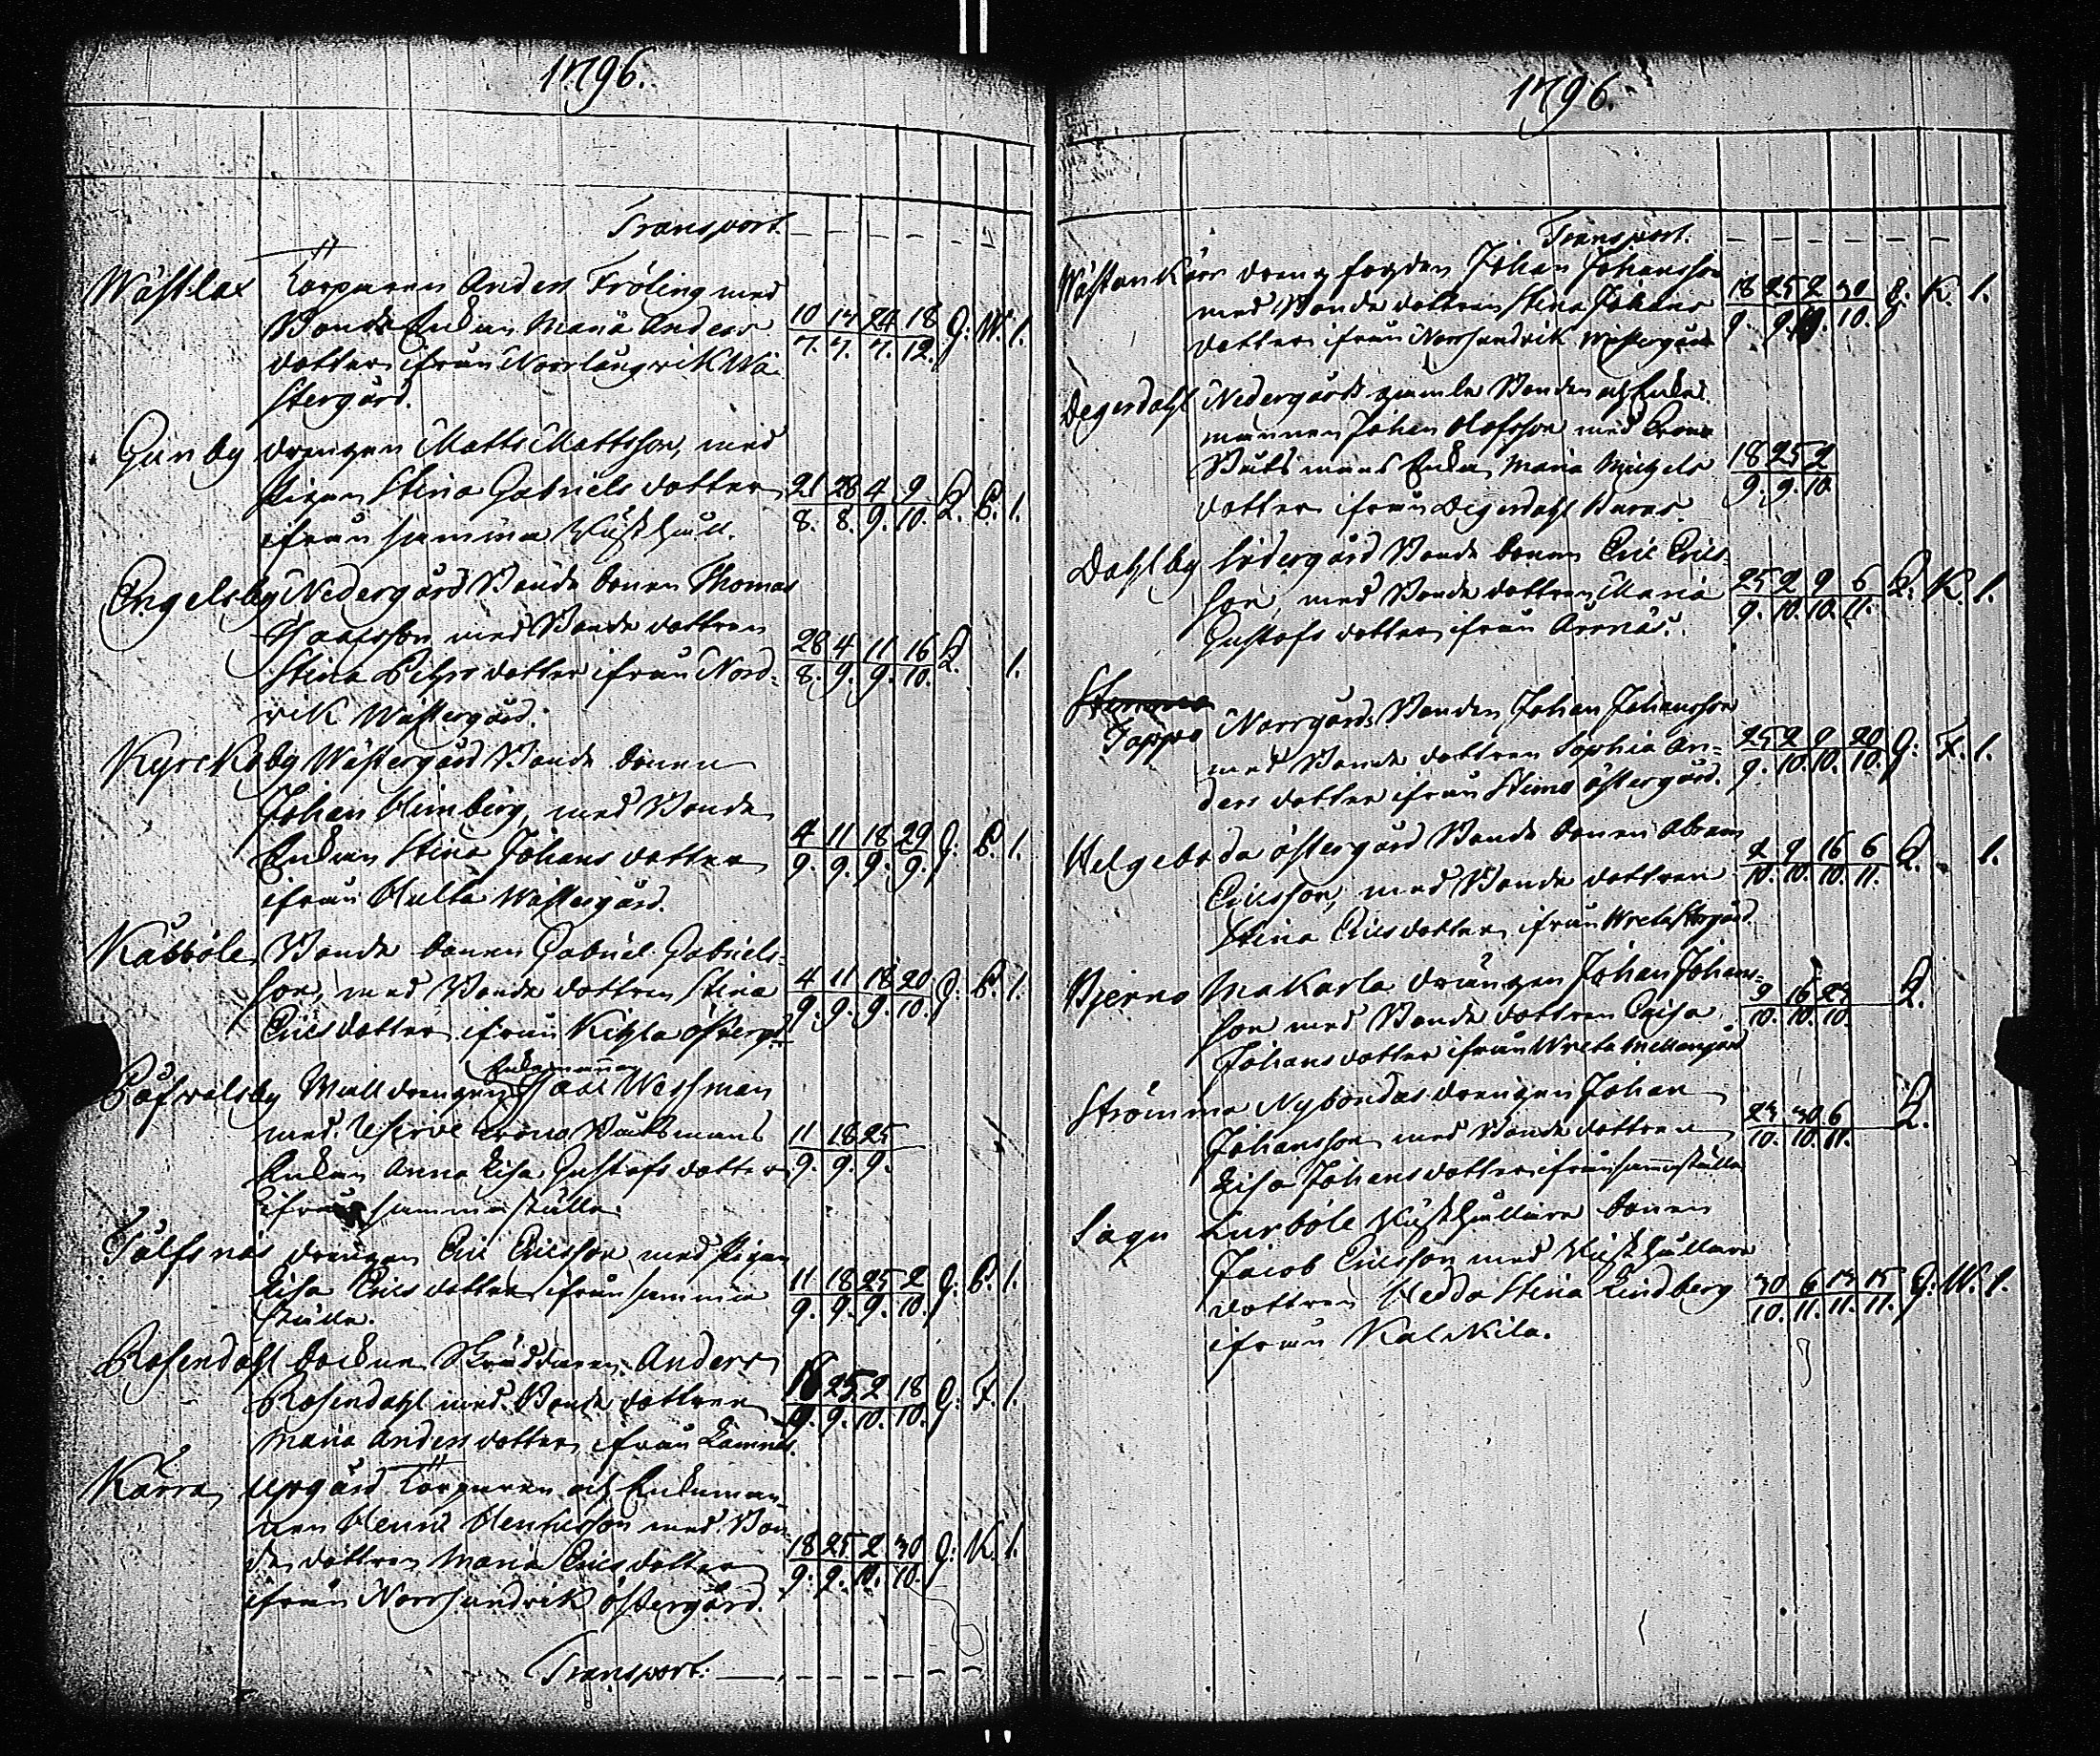 1796.
Transport.
Wästlax Torparen Anders Fröling med
Bonde Enkan Maria Anders
dotter ifrån Norrlångvik Wä-
stergård.
10 17 24 18 G: W. 1.
7. 7. 7. 12.
Gunby drengen Matts Mattsson, med
Pigan Stina Gabriels dotter
ifrån samma Rusthåll.
21 28 4 9 B. 1.
8. 8. 9. 10.
Engelsby Nedergård Bonde Sonen Thomas
Isaacsson med Bonde dottren
Stina Pehrs dotter ifrån Nord-
vik Wästergård.
28 4 11 16 1.
8. 9. 9. 10.
Kyrckoby Wästergård Bonde Sonen
Johan Himberg, med Bonde
Enkan Stina Johans dotter
ifrån Hulta Wästergård.
4 11 18 29 G: B. 1.
9. 9. 9. 9.
Kåbböle Bonde Sonen Gabriel Gabriels-
son, med Bonde dottren Stina
Erics dotter ifrån Kihla Östergd
4 11 18 20 G: B. 1.
9. 9. 9. 10.
Påfvalsby drengen Enkemannen Isac Wessman
med Reserve Crono Båtsmans
Enkan Anna Lisa Gustafs dotter
ifrån samma ställe.
11 18 25
9. 9. 9.
Tålfsnäs drengen Eric Ericsson med Pigan
Lisa Erics dotter ifrån samma
ställe.
11 18 25 2 G: B. 1.
9. 9. 9. 10.
Rosendahl Sockne Skräddaren Anders
Rosendahl med Bonde dottren
Maria Anders dotter ifrån Lamnäs.
18 25 2 18 G: F. 1.
9. 9. 10. 10.
Kärra Uppgård Torparen och Enkeman-
nen Henric Henricsson med Bon-
de dottren Maria Erics dotter
ifrån Norrsundvik Östergård.
18 25 2 30 G: K. 1.
9. 9. 10. 10.
Transport.
1796.
Transport.
Wästankärr dreng fogden Johan Johansson
med Bonde dottren Stina Johans
dotter ifrån Norrsundvik Wästergård
18 25 2 30 K. 1.
9. 9. 10. 10.
Degerdahl Nedergårds gamla Bonden och Enke-
mannen Johan Olofsson med Crono
Båtsmans Enkan Maria Michels
dotter ifrån Degerdahl
18 25 2
9. 9. 10.
Dahlby Södergård Bonde Sonen Eric Erics-
son, med Bonde dottren Maria
Gustafs dotter ifrån Arnäs.
25 2 9 6 K. 1.
9. 10. 10. 11.
Tappo Norrgårds Bonden Johan Johansson
med Bonde dottren Sophia An-
ders dotter ifrån Stimo Östergård.
25 2 9 20 G: F. 1.
9. 10. 10. 10.
Helgeboda Östergård Bonde Sonen Abram
Ericsson, med Bonde dottren
Stina Ericsdotter ifrån Wreta
2 9 16 6 1.
10. 10. 10. 11.
Bjerno Makarla drängen Johan Johans-
son med Bonde dottren Caisa
Johans dotter ifrån Wreta Mellangård
9 16 23
10. 10. 10.
Strömma Nybondas drengen Johan
Johansson med Bonde dottren
Lisa Johans dotter ifrån samma ställe
23 30 6
10. 10. 11.
Sagu Lurböle Rusthållare Sonen
Jacob Ericsson med Rusthållare
dottren Hedda Stina Lindberg
ifrån Kalkila.
30 6 13 15 G: W. 1.
10. 11. 11. 11.